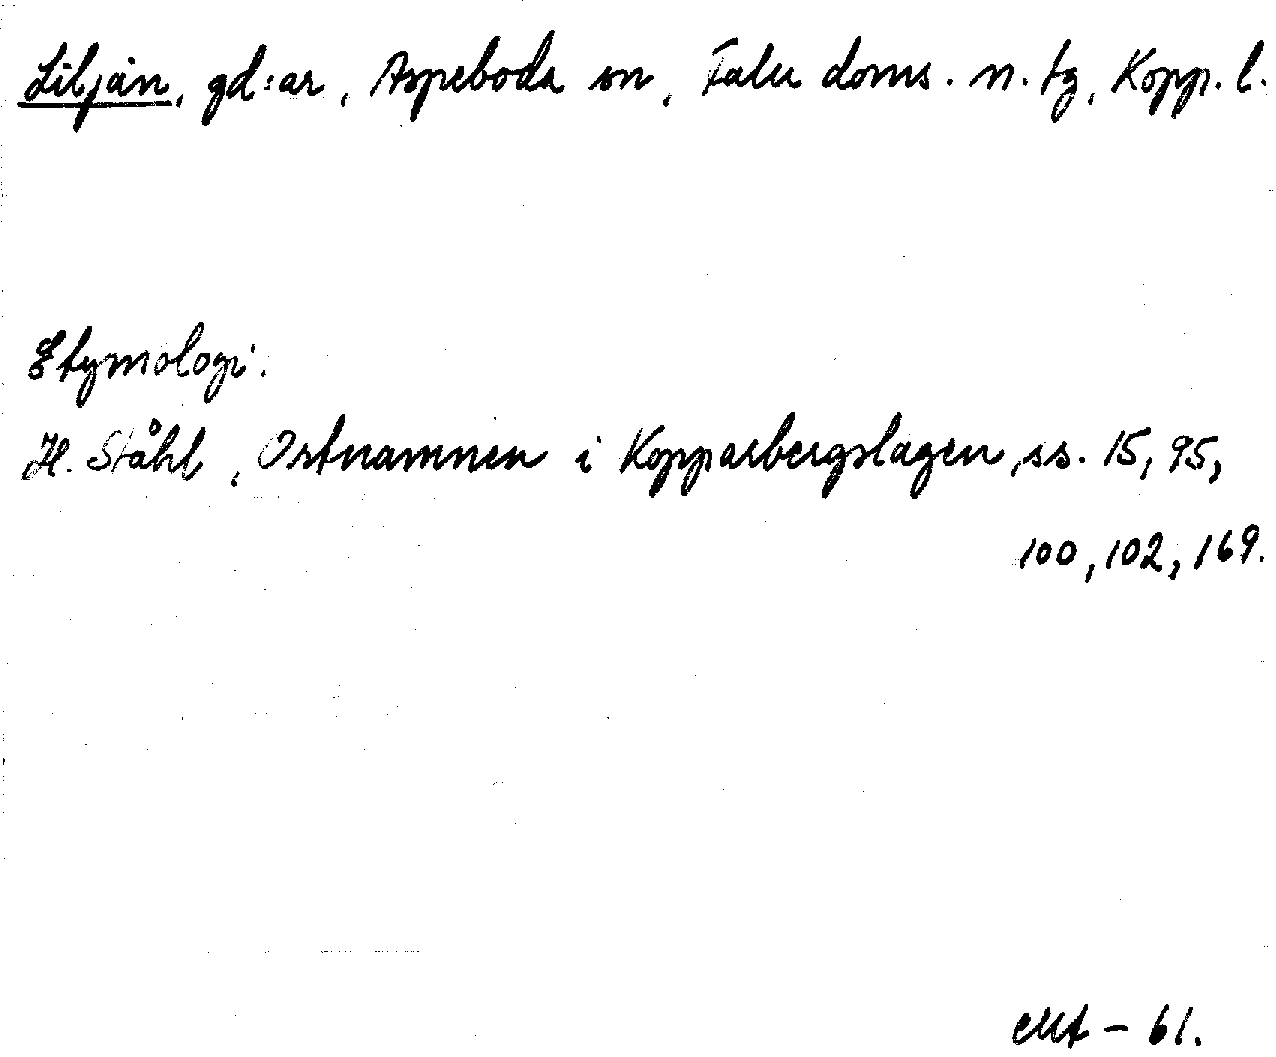 Liljan, gd:ar, Aspeboda sn, Falu doms. n. tg, Kopp. l.
Etymologi:
H. Ståhl, Ortnamnen i Kopparbergslagen, ss. 15, 95,
100, 102, 169.
- 61.